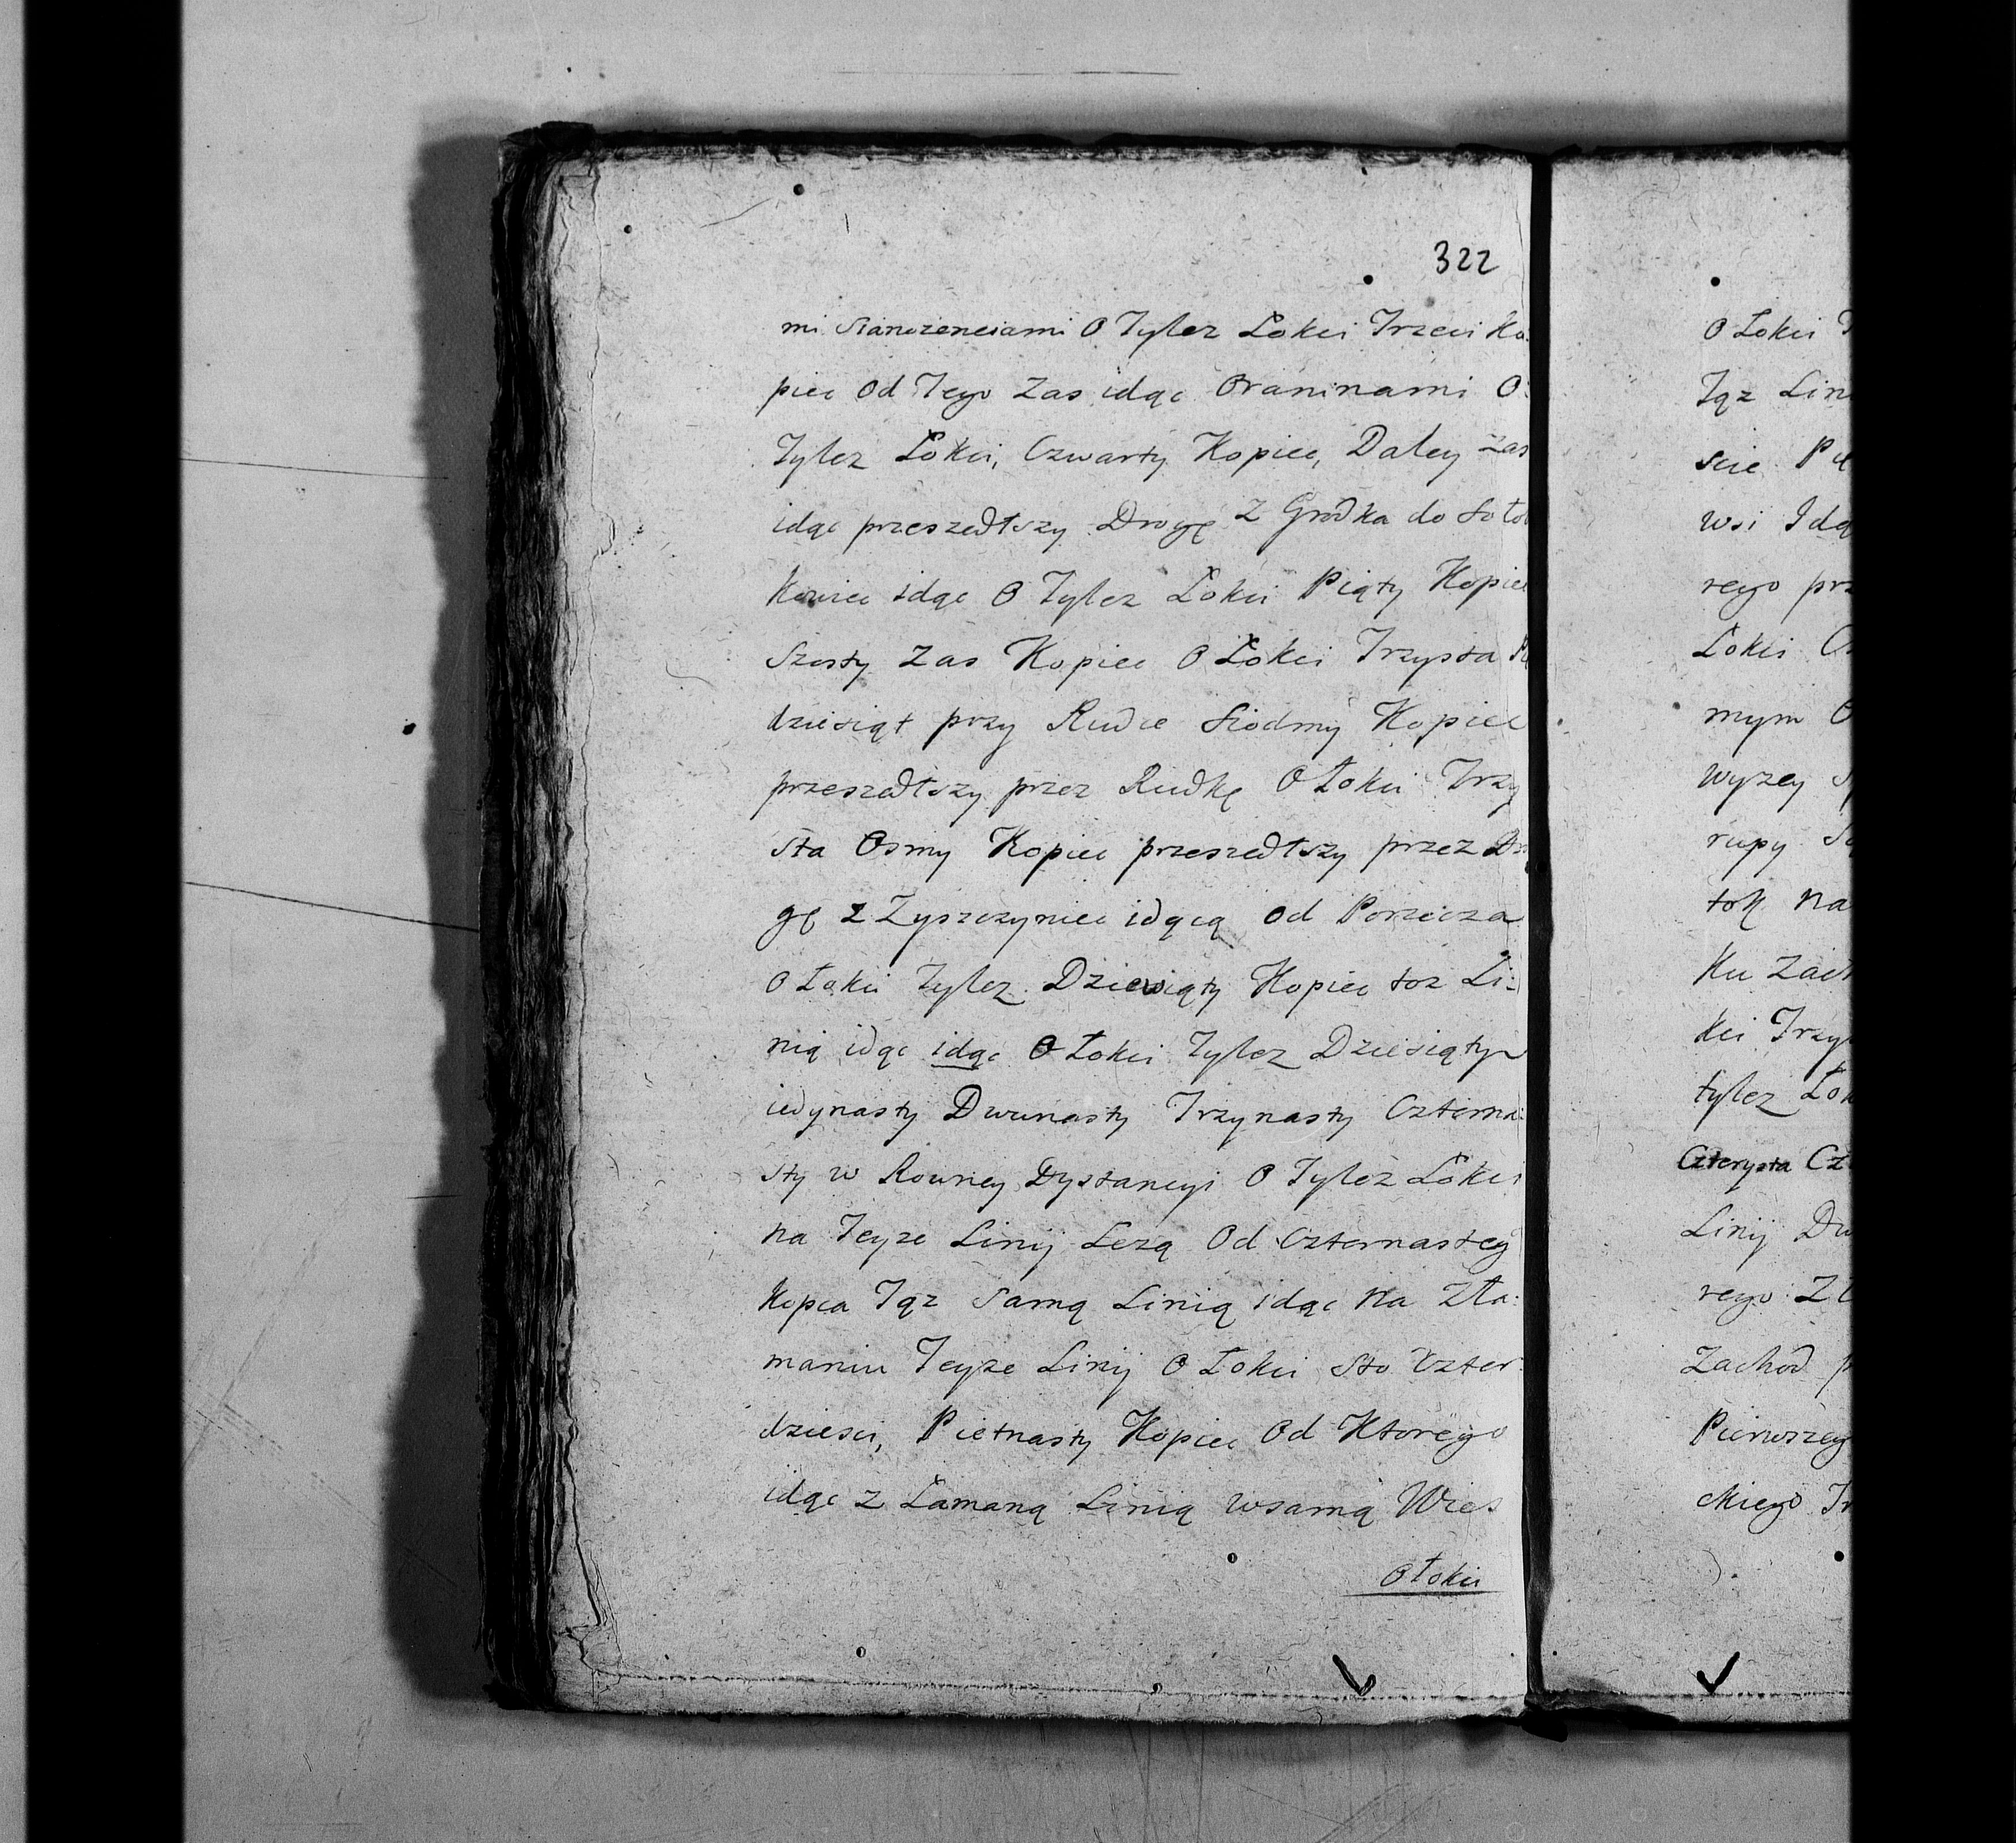 322
mi Sianozenciami O Tylez Łokci Trzeci Ko:
piec Od Tego Zas idąc Oraninami O:
Tylez Łokci, Czwarty Kopiec, Daley zas
idąc przeszedłszy Drogę Z Grodka do Soło
kowiec idąc O Tylez Łokci Piąty Kopiec
Szosty Zas Kopiec O Łokci Trzysta
dziesiąt przy Rudce Siodmy Kopiec
przeszedłszy przez Rudkę O Łokci Trzy
sta Osmy Kopiec przeszedłszy przez Dro
gę z Zyszczyniec idącą od Porzecza
O Łokci Tylez Dziewiąty Kopiec toz Li:
nią idąc idąc O Łokci Tylez Dziesiąty
iedynasty Dwunasty Trzynasty Czterna:
sty w Rowney Dystancyi O Tylez Łokci
na Teyze Linij Lezą Od Czternastey
Kopca Tąz Samą Linią idąc Na Zła:
maniu Teyze Linij O Łokci Sto Czter
dziesci, Pietnasty Kopiec Od Ktorego
idąc z Łamaną Linią wsamą Wies
O Łokci
O Łokci
Tąz Lin
scie
wsi Idą
rego prz
Łokci
mym
wyzey
rupy
tok Na
Ku Zach
kci Trzy
tylez Łok
Czterysta Cz
Linij Dw
rego
Zachod
Pierwszey
ckiego